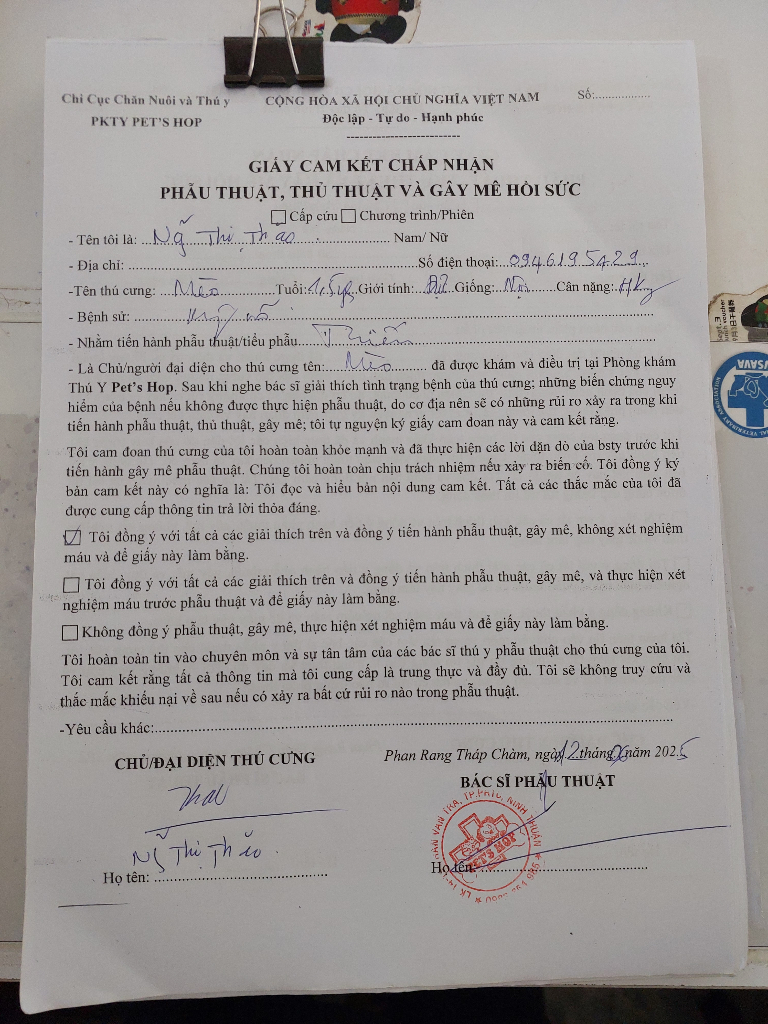 Chi Cục Chăn Nuôi và Thú y
PKTY PET'S HOP
CỘNG HÒA XÃ HỘI CHỦ NGHĨA VIỆT NAM
Độc lập - Tự do - Hạnh phúc
Số:
GIẤY CAM KẾT CHẤP NHẬN
PHẪU THUẬT, THỦ THUẬT VÀ GÂY MÊ HỒI SỨC
Cấp cứu Chương trình/Phiên
- Tên tôi là: Ng̃ Thị Thảo Nam/ Nữ
- Địa chỉ: Số điện thoại:
-Tên thú cưng: Mèo Tuổi: Giới tính: Giống: Nội Cân nặng:
- Bệnh sử:
- Nhằm tiến hành phẫu thuật/tiểu phẫu Thiến
- Là Chủ/người đại diện cho thú cưng tên: Mèo đã được khám và điều trị tại Phòng khám
Thú Y Pet's Hop. Sau khi nghe bác sĩ giải thích tình trạng bệnh của thú cưng; những biến chứng nguy
hiểm của bệnh nếu không được thực hiện phẫu thuật, do cơ địa nên sẽ có những rủi ro xảy ra trong khi
tiến hành phẫu thuật, thủ thuật, gây mê; tôi tự nguyện ký giấy cam đoan này và cam kết rằng.
Tôi cam đoan thú cưng của tôi hoàn toàn khỏe mạnh và đã thực hiện các lời dặn dò của bsty trước khi
tiến hành gây mê phẫu thuật. Chúng tôi hoàn toàn chịu trách nhiệm nếu xảy ra biến cố. Tôi đồng ý ký
bản cam kết này có nghĩa là: Tôi đọc và hiểu bản nội dung cam kết. Tất cả các thắc mắc của tôi đã
được cung cấp thông tin trả lời thỏa đáng.
Tôi đồng ý với tất cả các giải thích trên và đồng ý tiến hành phẫu thuật, gây mê, không xét nghiệm
máu và để giấy này làm bằng.
Tôi đồng ý với tất cả các giải thích trên và đồng ý tiến hành phẫu thuật, gây mê, và thực hiện xét
nghiệm máu trước phẫu thuật và để giấy này làm bằng.
Không đồng ý phẫu thuật, gây mê, thực hiện xét nghiệm máu và để giấy này làm bằng.
Tôi hoàn toàn tin vào chuyên môn và sự tận tâm của các bác sĩ thú y phẫu thuật cho thú cưng của tôi.
Tôi cam kết rằng tất cả thông tin mà tôi cung cấp là trung thực và đầy đủ. Tôi sẽ không truy cứu và
thắc mắc khiếu nại về sau nếu có xảy ra bất cứ rủi ro nào trong phẫu thuật.
-Yêu cầu khác:
Phan Rang Tháp Chàm, ngày 12 tháng năm 2025
CHỦ/ĐẠI DIỆN THÚ CƯNG
BÁC SĨ PHẪU THUẬT
Ng̃ Thị Thảo
Họ tên:
Họ tên:
PET'S HOP